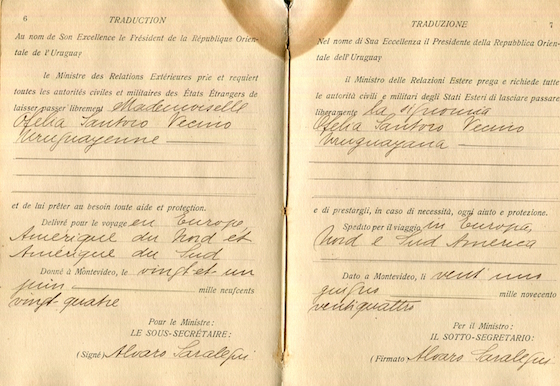 6
TRADUCTION
Au nom de Son Excellence le Président de la République Orien-
tale de l'Uruguay
le Ministre des Relations Extérieures prie et requiert
toutes les autorités civiles et militaires des États Étrangers de
laisser passer librement Mademoiselle
Ofelia Santoro Vecino
Uruguayenne
et de lui prêter au besoin toute aide et protection.
Délivré pour le voyage en Europe
Amérique du Nord et
Amérique du Sud
Donné à Montevideo, le vingt et un
juin mille neufcents
vingt quatre
Pour le Ministre:
LE SOUS-SECRÉTAIRE:
(Signé) Alvaro Saralegui
7
TRADUZIONE
Nel nome di Sua Eccellenza il Presidente della Repubblica Orien-
tale dell'Uruguay
il Ministro delle Relazioni Estere prega e richiede tutte
le autorità civili e militari degli Stati Esteri di lasciare passare
liberamente la signorina
Ofelia Santoro Vecino
Uruguayana
e di prestargli, in caso di necessità, ogni aiuto e protezione.
Spedito per il viaggio in Europa,
Nord e Sud America
Dato a Montevideo, li venti uno
giugno mille novecento
ventiquattro
Per il Ministro:
IL SOTTO-SEGRETARIO:
(Firmato) Alvaro Saralegui